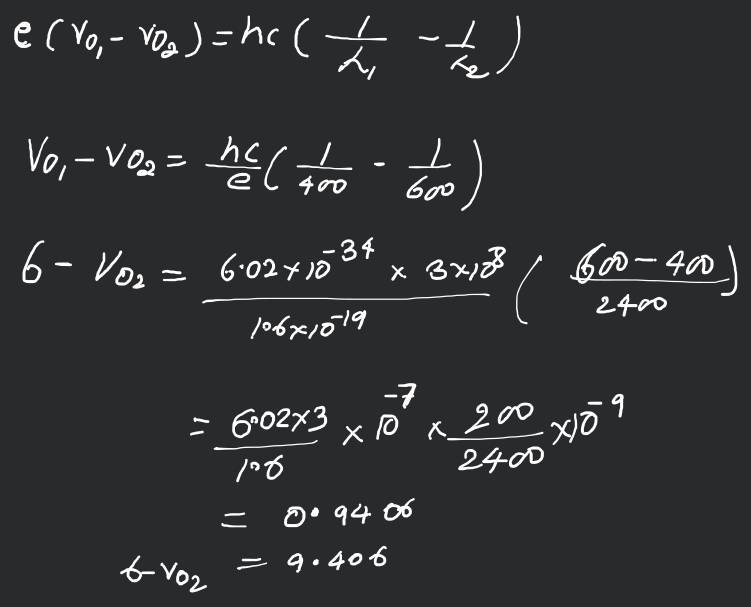 e(V₀₁ - V₀₂) = hc(1/λ₁ - 1/λ₂)
V₀₁ - V₀₂ = hc/e (1/400 - 1/600)
6 - V₀₂ = 6.02 × 10⁻³⁴ × 3×10⁸ / 1.6×10⁻¹⁹ (600 - 400 / 2400)
= 6.02×3 / 1.6 × 10⁻⁷ × 200 / 2400 × 10⁻⁹
= 0.9406
6 - V₀₂ = 9.406